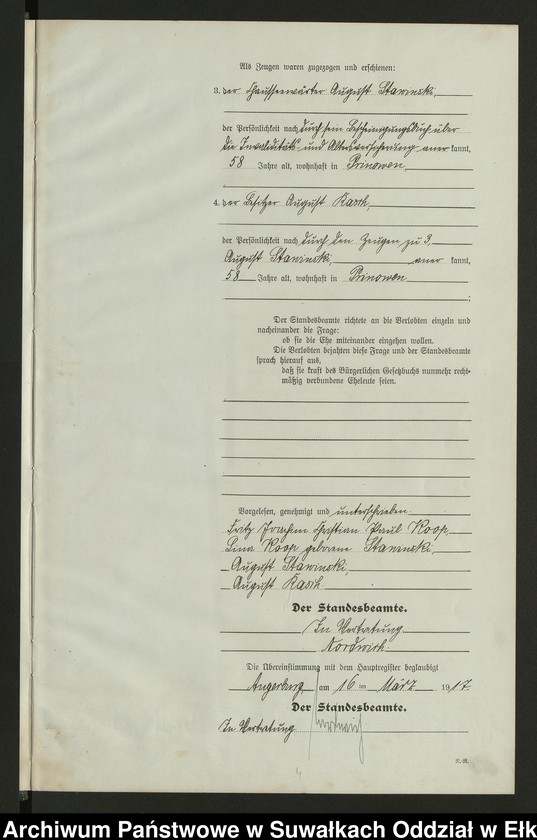 Als Zeugen waren zugezogen und erschienen:
3. der Chausseewärter August Stawinski,
der Persönlichkeit nach durch sein Bescheinigungsbuch über
die Invaliditäts- und Altersversicherung aner kannt,
58 Jahre alt, wohnhaft in Prinowen,
4. der Besitzer August Kasch,
der Persönlichkeit nach durch den Zeugen zu 3,
August Stawinski, aner kannt,
58 Jahre alt, wohnhaft in Prinowen
;
Der Standesbeamte richtete an die Verlobten einzeln und
nacheinander die Frage:
ob sie die Ehe miteinander eingehen wollen.
Die Verlobten bejahten diese Frage und der Standesbeamte
sprach hierauf aus,
daß sie kraft des Bürgerlichen Gesetzbuchs nunmehr recht-
mäßig verbundene Eheleute seien.
Vorgelesen, genehmigt und unterschrieben.
Fritz Joachim Christian Paul Koop,
Lina Koop geborene Stawinski,
August Stawinski,
August Kasch
Der Standesbeamte.
In Vertretung
Nordwich.
Die Übereinstimmung mit dem Hauptregister beglaubigt
Angerburg, am 16 ten März 1917.
Der Standesbeamte.
In Vertretung
Archiwum Państwowe w Suwałkach Oddział w Ełk